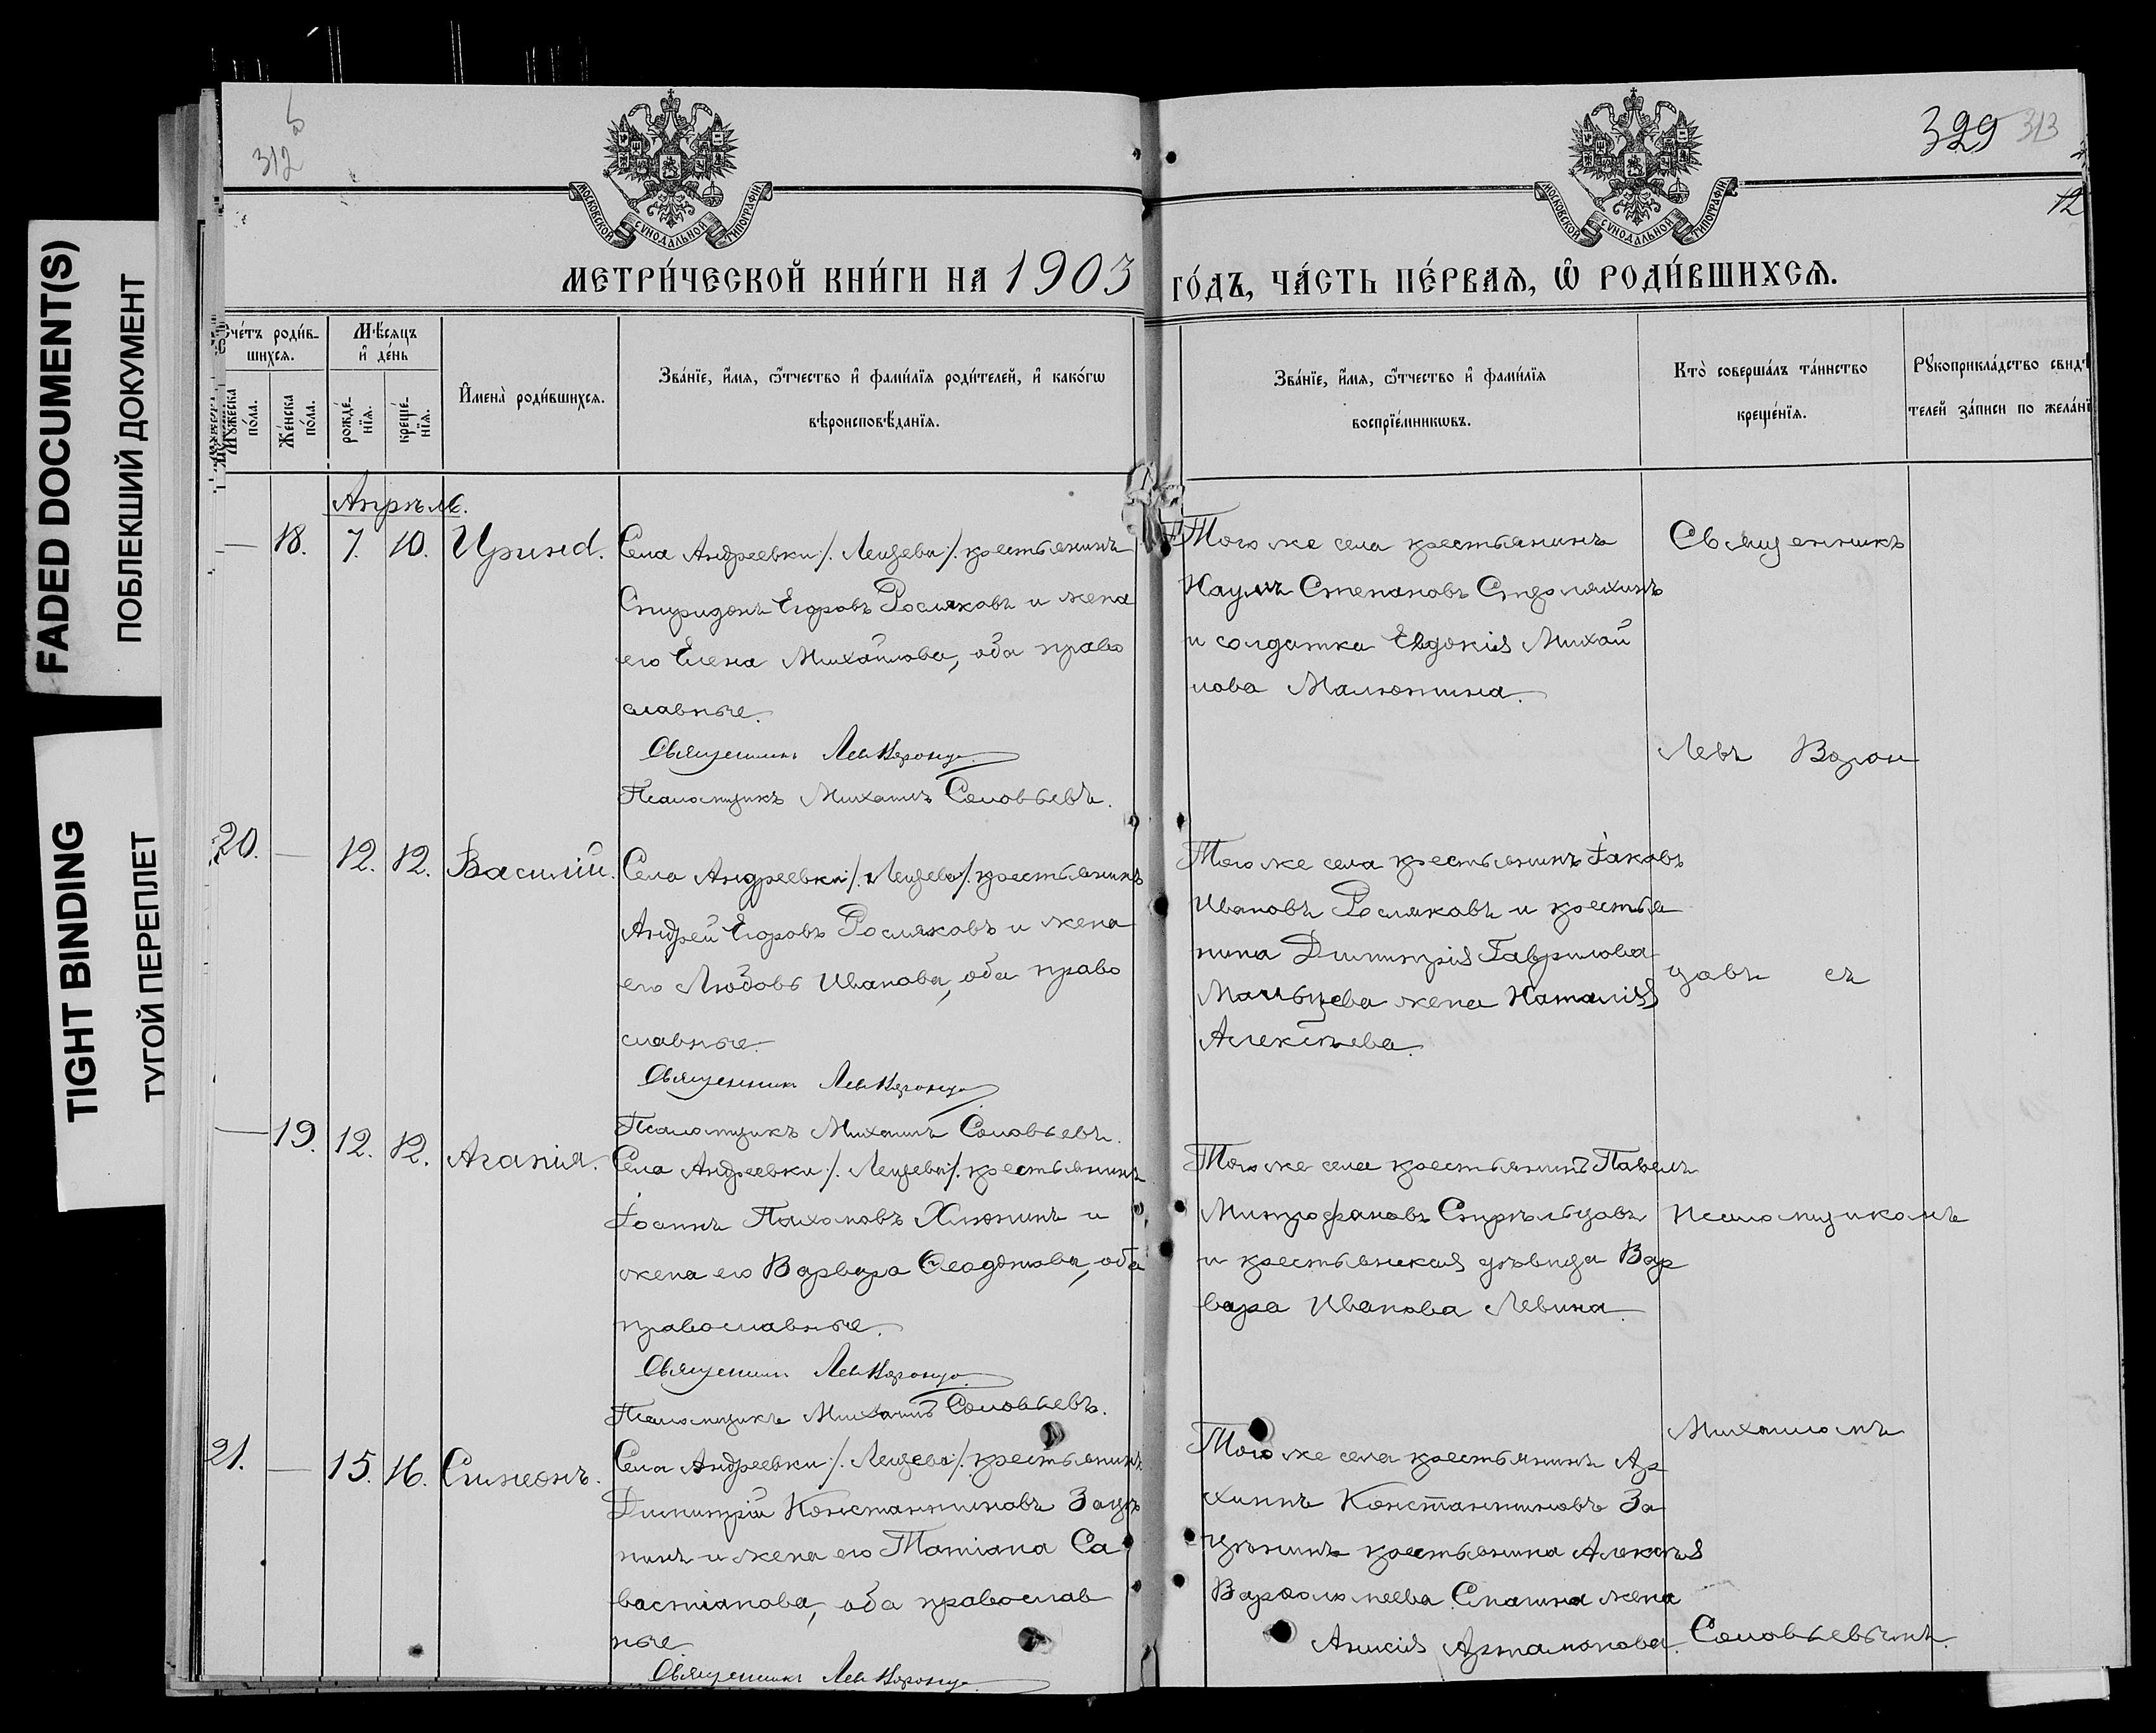 FADED DOCUMENT(S)
ПОБЛЕКШИЙ ДОКУМЕНТ
TIGHT BINDING
ТУГОЙ ПЕРЕПЛЕТ
312
329 313
12
МОСКОВСКОЙ СУНОДАЛЬНОЙ ТИПОГРАФІИ
МОСКОВСКОЙ СУНОДАЛЬНОЙ ТИПОГРАФІИ
МЕТРИ́ЧЕСКОЙ КНИ́ГИ НА 1903 ГО́ДЪ, ЧА́СТЬ ПЕ́РВАѦ, Ѡ҆ РОДИ́ВШИХСѦ.
Счéтъ роди́в-
шихсѧ.
Мѣ́сяцъ
и҆ де́нь
Мꙋ́жеска
по́ла.
Же́нска
по́ла.
рожде́-
нїѧ.
креще́-
нїѧ.
И҆мена̀ роди́вшихсѧ.
Зва́нїе, и҆́мѧ, ѻ҆́тчество и҆ фамѝлїѧ роди́телей, и҆ како́гѡ
вѣроисповѣ́данїѧ.
Зва́нїе, и҆́мѧ, ѻ҆́тчество и҆ фамѝлїѧ
воспрїе́мникѡвъ.
Кто̀ соверша́лъ та́инство
креще́нїѧ.
Рꙋкоприкла́дство свидѣ-
телей за́писи по жела́нї
Апрѣль.
— 18. 7. 10. Ирина.
Села Андреевки /. Лещева /. крестьянинъ
Спиридонъ Егоровъ Росляковъ и жена
его Елена Михайлова, оба право
славные.
Священникъ Левъ Воронцо
Псаломщикъ Михаилъ Соловьевъ.
Того же села крестьянинъ
Наумъ Степановъ
и солдатка Евдокія Михай
лова Малютина.
Священникъ
Левъ Ворон
20. — 12. 12. Василій.
Села Андреевки /. Лещева /. крестьянинъ
Андрей Егоровъ Росляковъ и жена
его Любовь Иванова, оба право
славные.
Священникъ Левъ Воронцо
Псаломщикъ Михаилъ Соловьевъ.
Того же села крестьянинъ Іаковъ
Ивановъ Росляковъ и крестья
нина Димитрія Гаврилова
Мальцева жена Наталія
Алексѣева.
цовъ съ
— 19. 12. 12. Агапія.
Села Андреевки /. Лещева /. крестьянинъ
Іоаннъ Пахомовъ Хлюпинъ и
жена его Варвара Ѳеодотова, оба
православные.
Священникъ Левъ Воронцо
Псаломщикъ Михаилъ Соловьевъ.
Того же села крестьянинъ Павелъ
Митрофановъ Стрѣльцовъ
и крестьянская дѣвица Вар
вара Иванова Левина.
псаломщикомъ
Михаиломъ
21. — 15. 16. Симеонъ.
Села Андреевки /. Лещева /. крестьянинъ
Димитрій Константиновъ Зацѣ
пинъ и жена его Татіана Са
вастіанова, оба православ
ные
Священникъ Левъ Воронцо
Того же села крестьянинъ Ар
хиппъ Константиновъ За
цѣпинъ крестьянина Алексѣя
Варѳоломеева жена
Анисія Артамонова.
Соловьевымъ.